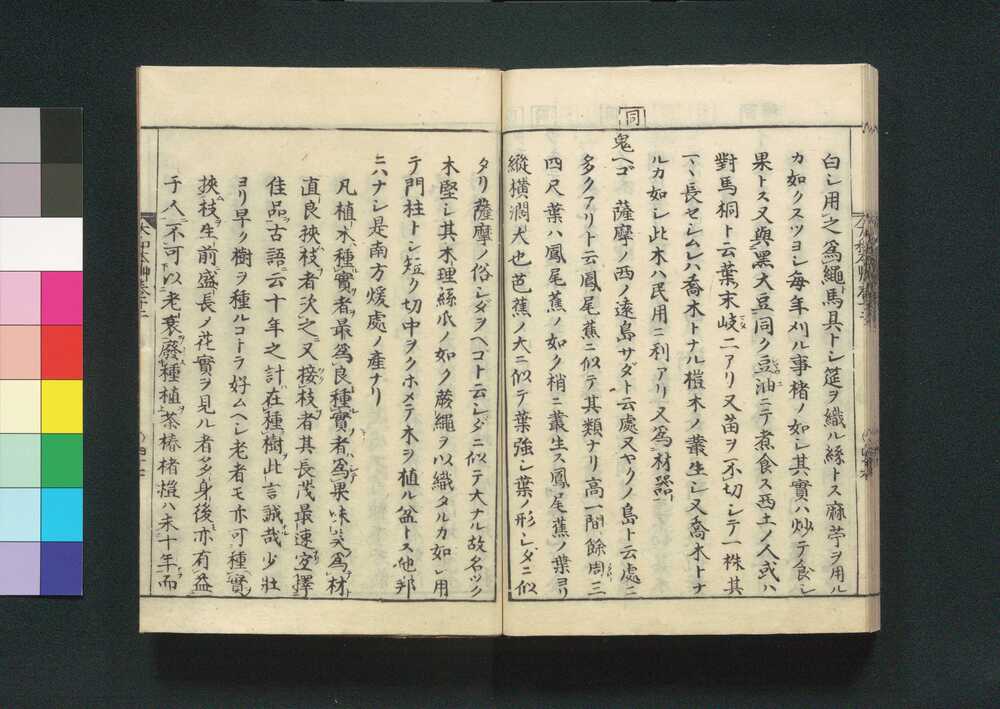 白シ用之為繩馬具トシ筵ヲ織ル絲トス麻苧ヲ用ル
カ如クスツヨシ毎年刈ル事楮ノ如シ其實ハ炒テ食シ
果トス又與黒大豆同ク豆油ニテ煮食ス西土ノ人或ハ
對馬桐ト云葉末岐二アリ又苗ヲ不切シテ一株其
マヽ長セシムレハ喬木トナル榿木ノ叢生シ又喬木トナ
ルカ如シ此木ハ民用ニ利アリ又為材器
同
鬼ヘゴ 薩摩ノ西ノ遠島サダト云處又ヤクノ島ト云處ニ
多クアリト云鳳尾蕉ニ似テ其類ナリ高一間餘周三
四尺葉ハ鳳尾蕉ノ如ク梢ニ叢生ス鳳尾蕉ノ葉ヨリ
縱横濶大也芭蕉ノ大ニ似テ葉強シ葉ノ形シダニ似
タリ薩摩ノ俗シダヲヘゴト云シダニ似テ大ナル故名ツク
木堅シ其木理絲瓜ノ如ク藤繩ヲ以織タルカ如シ用
テ門柱トシ短ク切中ヲクホメテ木ヲ植ル盆トス他邦
ニハナシ是南方煖處ノ産ナリ
凡植木種實者最為良種實者為果味美為材
直良挾枝者次之又接枝者其長茂最速宜擇
佳品古語云十年之計在種樹此言誠哉少壯
ヨリ早ク樹ヲ種ルコトヲ好ムヘシ老者モ亦可種實
挾枝生前盛長ノ花實ヲ見ル者多身後亦有益
于人不可以老衰廢種植茶椿楮榿ハ未十年而